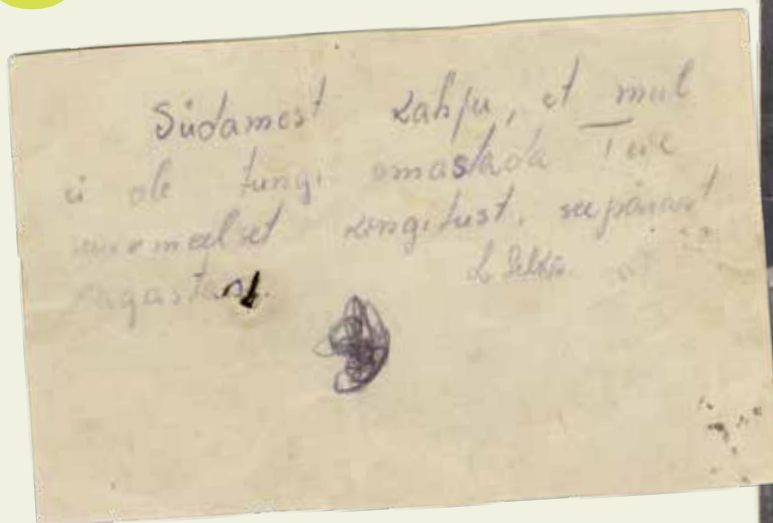 Südamest kahju, et mul
ei ole tungi omastada Teie
meelset kingitust, seepärast
tagastan.